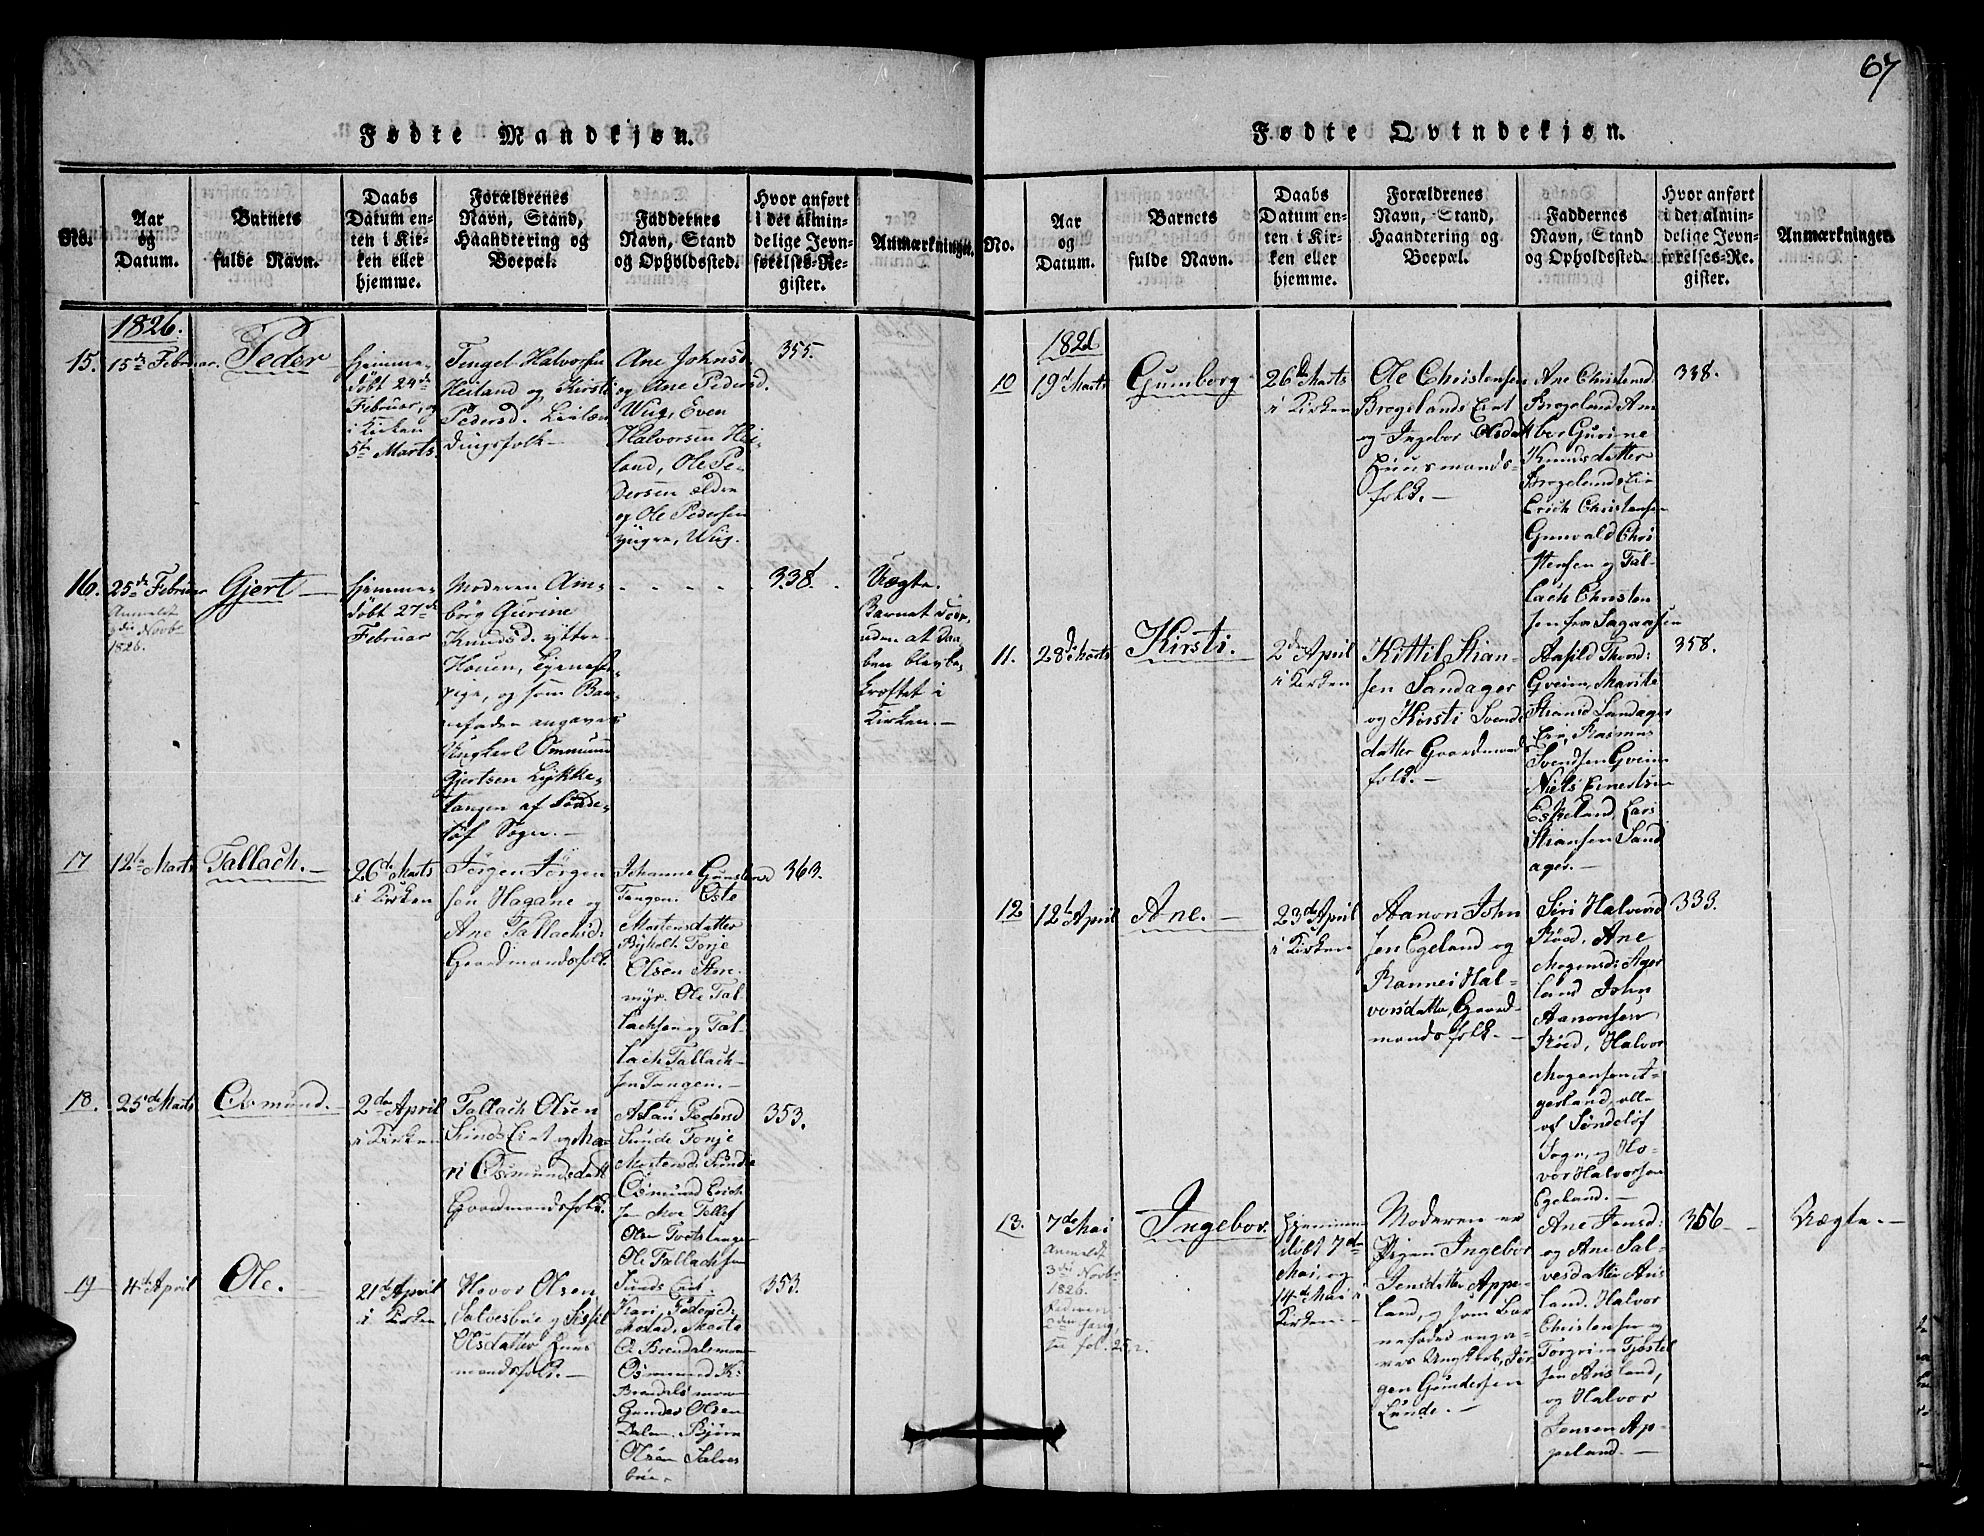 67
Fødte Mandkjøn.
No.
Aar
og
Datum.
Barnets
fulde Navn.
Daabs
Datum en-
ten i Kir-
ken eller
hjemme.
Forældrenes
Navn, Stand,
Haandtering og
Boepæl.
Faddernes
Navn, Stand
og Opholdssted.
Hvor anført
i det almin-
delige Jevn-
førelses-Re-
gister.
Anmærkninger.
1826.
15.
15de Februar.
Peder
hjemme-
døbt 24de
Februar, og
i Kirken
5te Marts.
Tengel Halvorsen
Heiland og Kirsti
Pedersd. Leilæn
dingsfolk
Ane Johnsd.
og Ane Pedersd.
Wug, Even
Halvorsen Hei-
land, Ole Pe-
dersen ældre
og Ole Pedersen
yngre, Wug.
355.
16.
25de Februar
Anmeldt
3die Novbr
1826.
Gjert
hjemme-
døbt 27de
Februar
Moderen Am-
borg Gurine
Knudsd. yttre-
Houen,
pige, og som Bar-
nefader angaves
Ungkarl Ommund
Gjertsen Lykke-
tangen af Sønde-
løf Sogn.
338.
Uægte.
Barnet døde,
uden at Daa-
ben blev be-
kræftet i
Kirken.
17
12te Marts
Tallach.
26de Marts
i Kirken
Jørgen Jørgen
sen Hagane og
Ane Tallachsd.
Gaardmandsfolk.
Johanne Gunstensd
Tangen. Oste
Mortensdatter
Byholt. Tonje
Olsen
myr. Ole Tal-
lachsen og Tal-
lach Tallach-
sen Tangen.
363.
18.
25de Marts
Osmund.
2den April
i Kirken
Tallach Olsen
Sunds Eiet og Ma-
ri Osmundsdatt
Gaardmandsfolk.
Aslau Pedersd
Sunde Tonje
Mortensd: Sunde
Osmund Erich
sen Moe Tallef
Olsen Tvetstangen
Ole Tallachsen
Sunds Eiet.
353.
19
4de April
Ole.
21de April
i Kirken
Hovor Olsen
Salvesbøe og Sissel
Olsdatter Huus
mandsfolk.
Kari
Marte
O. Brendalsmoen
Osmund K.
Brendalsmoen
Gunder Olsen
Dalen. Bjørn
Olsen Salves
bøe.
353.
Fødte Qvindekjøn.
No.
Aar
og
Datum.
Barnets
fulde Navn.
Daabs
Datum en-
ten i Kir-
ken eller
hjemme.
Forældrenes
Navn, Stand,
Haandtering og
Boepæl.
Faddernes
Navn, Stand
og Opholdssted.
Hvor anført
i det almin-
delige Jevn-
førelses-Re-
gister.
Anmærkninger.
1826
10
19de Marts
Gumborg
26de Marts
i Kirken
Ole Christensen
Brogelands Eiet
og Ingebor Olsdatt
Huusmands-
folk.
Ane Christensd:
Brogeland Am
bor Gurine
Knudsdatter
Brogelands Eie
Erich Christensen
Gunvald Chri
stensen og Tal-
lach Christen
sen fra Sagaasen
338.
11.
28de Marts
Kirsti.
2den April
i Kirken
Kittil Stian-
sen Sandager
og Kirsti Svends
datter Gaardmands
folk.
Aasild Thord:
Gveim, Marite
Stiansd Sandager
Eie, Rasmus
Svendsen Gveim
Niels Ernestsen
Eskeland, Lars
Stiansen Sand
ager.
358.
12
12te April
Ane.
23de April
i Kirken
Aanon John
sen Egeland og
Rannei Hal-
vorsdatter, Gaard-
mandsfolk.
Siri Halvorsd
Røed, Ane
Mogensd: Ager
land John
Aanonsen
Røed, Halvor
Mogensen A-
gerland, alle
af Søndeløf
Sogn, og Ho-
vor Halvorsen
Egeland.
333.
13.
7de Mai
Anmeldt
3die Novbr
1826.
Ingebor.
Hjemme
døbt 7de
Mai, og
14de Mai i
Kirken.
Moderen er
Pigen Ingebor
Jensdatter Appe-
land, og som Bar
nefader anga-
ves Ungkarl, Jør
gen Gundersen
Lunde.
Ane Jensd:
og Ane Sal-
vesdatter Aas
land, Halvor
Christensen og
Torgrim Tjøstel
sen Aasland,
og Halvor
Jensen Ap-
peland.
356
Uægte.